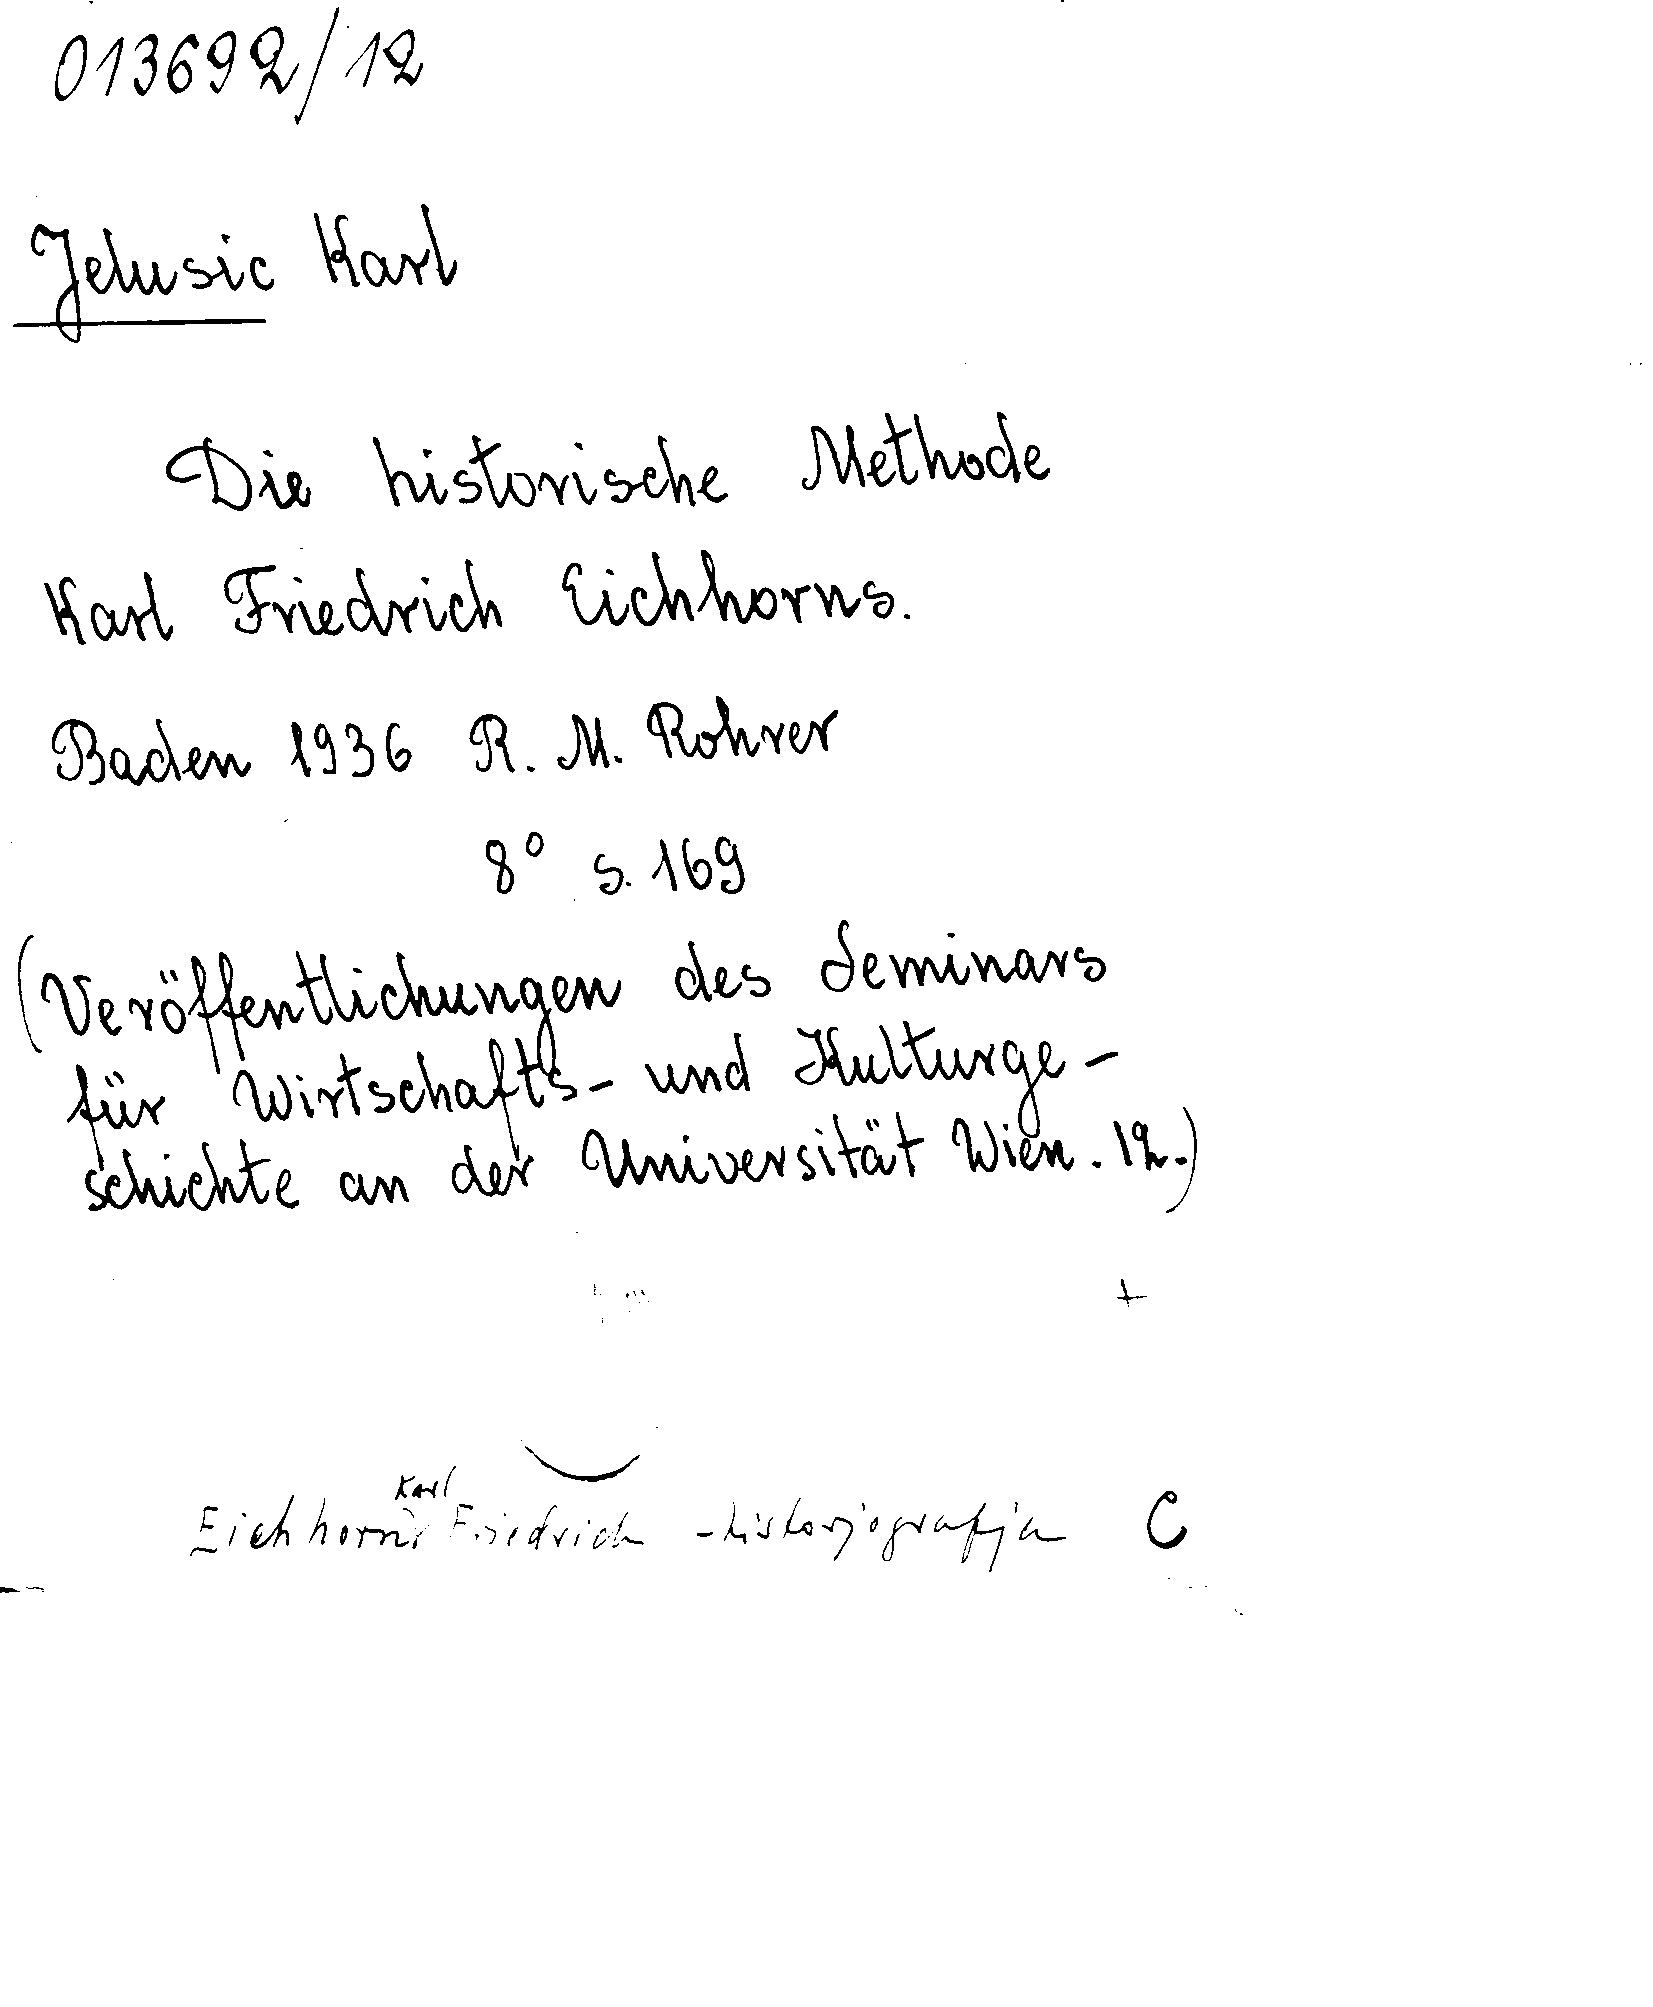 013692/12
Jelusic Karl
Die historische Methode
Karl Friedrich Eichhorns.
Baden 1936 R. M. Rohrer
8° s. 169
(Veröffentlichungen des Seminars
für Wirtschafts- und Kulturge-
schichte an der Universität Wien. 12.)
+
Karl
Eichhorn Friedrich - historjografja C